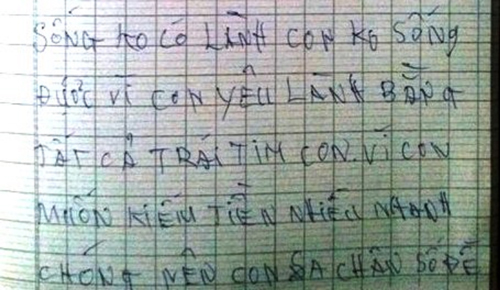 SỐNG KO CÓ LÀNH CON KO SỐNG
ĐƯỢC VÌ CON YÊU LÀNH BẰNG
TẤT CẢ TRÁI TIM CON. VÌ CON
MUỐN KIẾM TIỀN NHIỀU NHANH
CHÓNG NÊN CON SA CHÂN SỐ ĐỀ